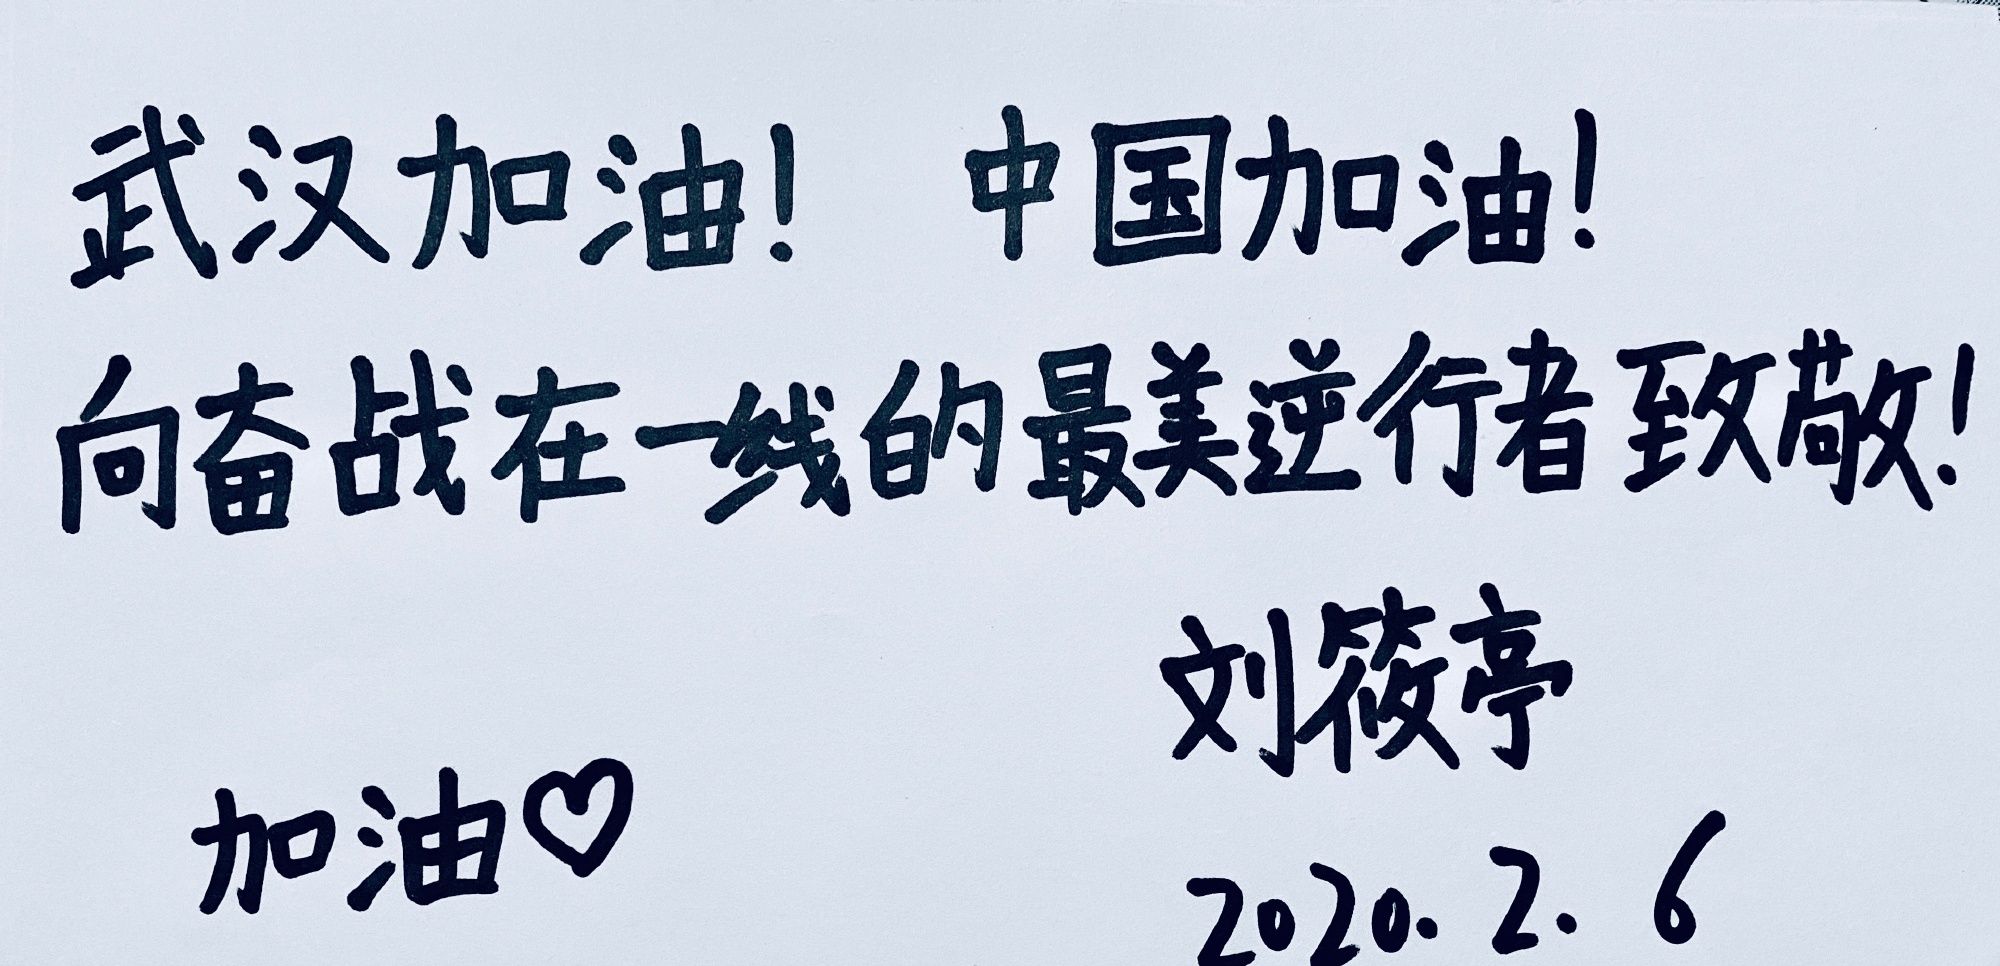 武汉加油！ 中国加油！
向奋战在一线的最美逆行者致敬！
刘筱亭
加油♡
2020.2.6